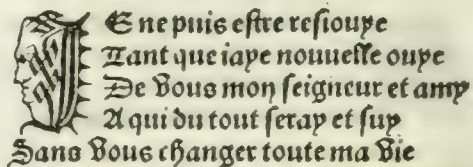 JE ne puis estre resiouye
Tant que iaye nouuelle ouye
De vous mon seigneur et amy
A qui du tout seray et suy
Sans vous changer toute ma vie